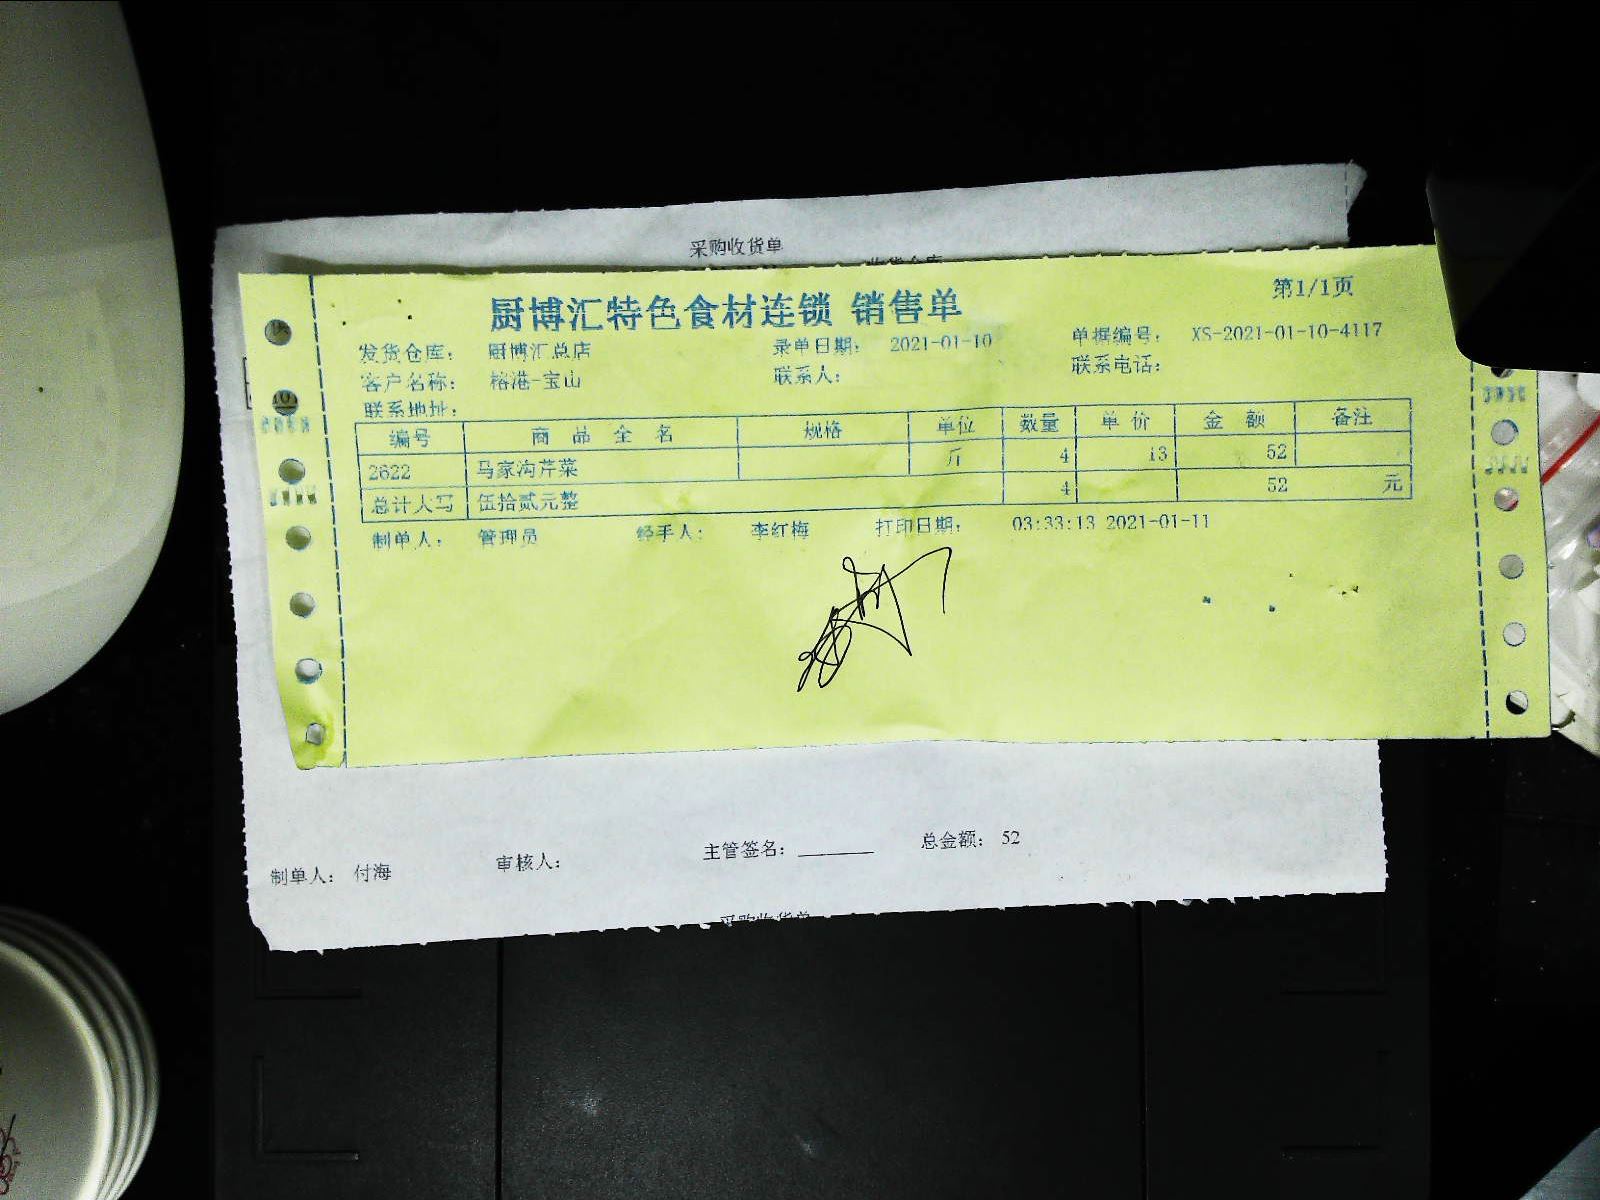 采购收货单
第1/1页
厨博汇特色食材连锁 销售单
发货仓库： 厨博汇总店 录单日期： 2021-01-10 单据编号： XS-2021-01-10-4117
客户名称： 榕港-宝山 联系人： 联系电话：
联系地址：
编号 商品全名 规格 单位 数量 单价 金额 备注
2622 马家沟芹菜 斤 4 13 52
总计大写 伍拾贰元整 4 52 元
制单人： 管理员 经手人： 李红梅 打印日期： 03:33:13 2021-01-11
制单人： 付海 审核人： 主管签名：________ 总金额： 52
采购收货单